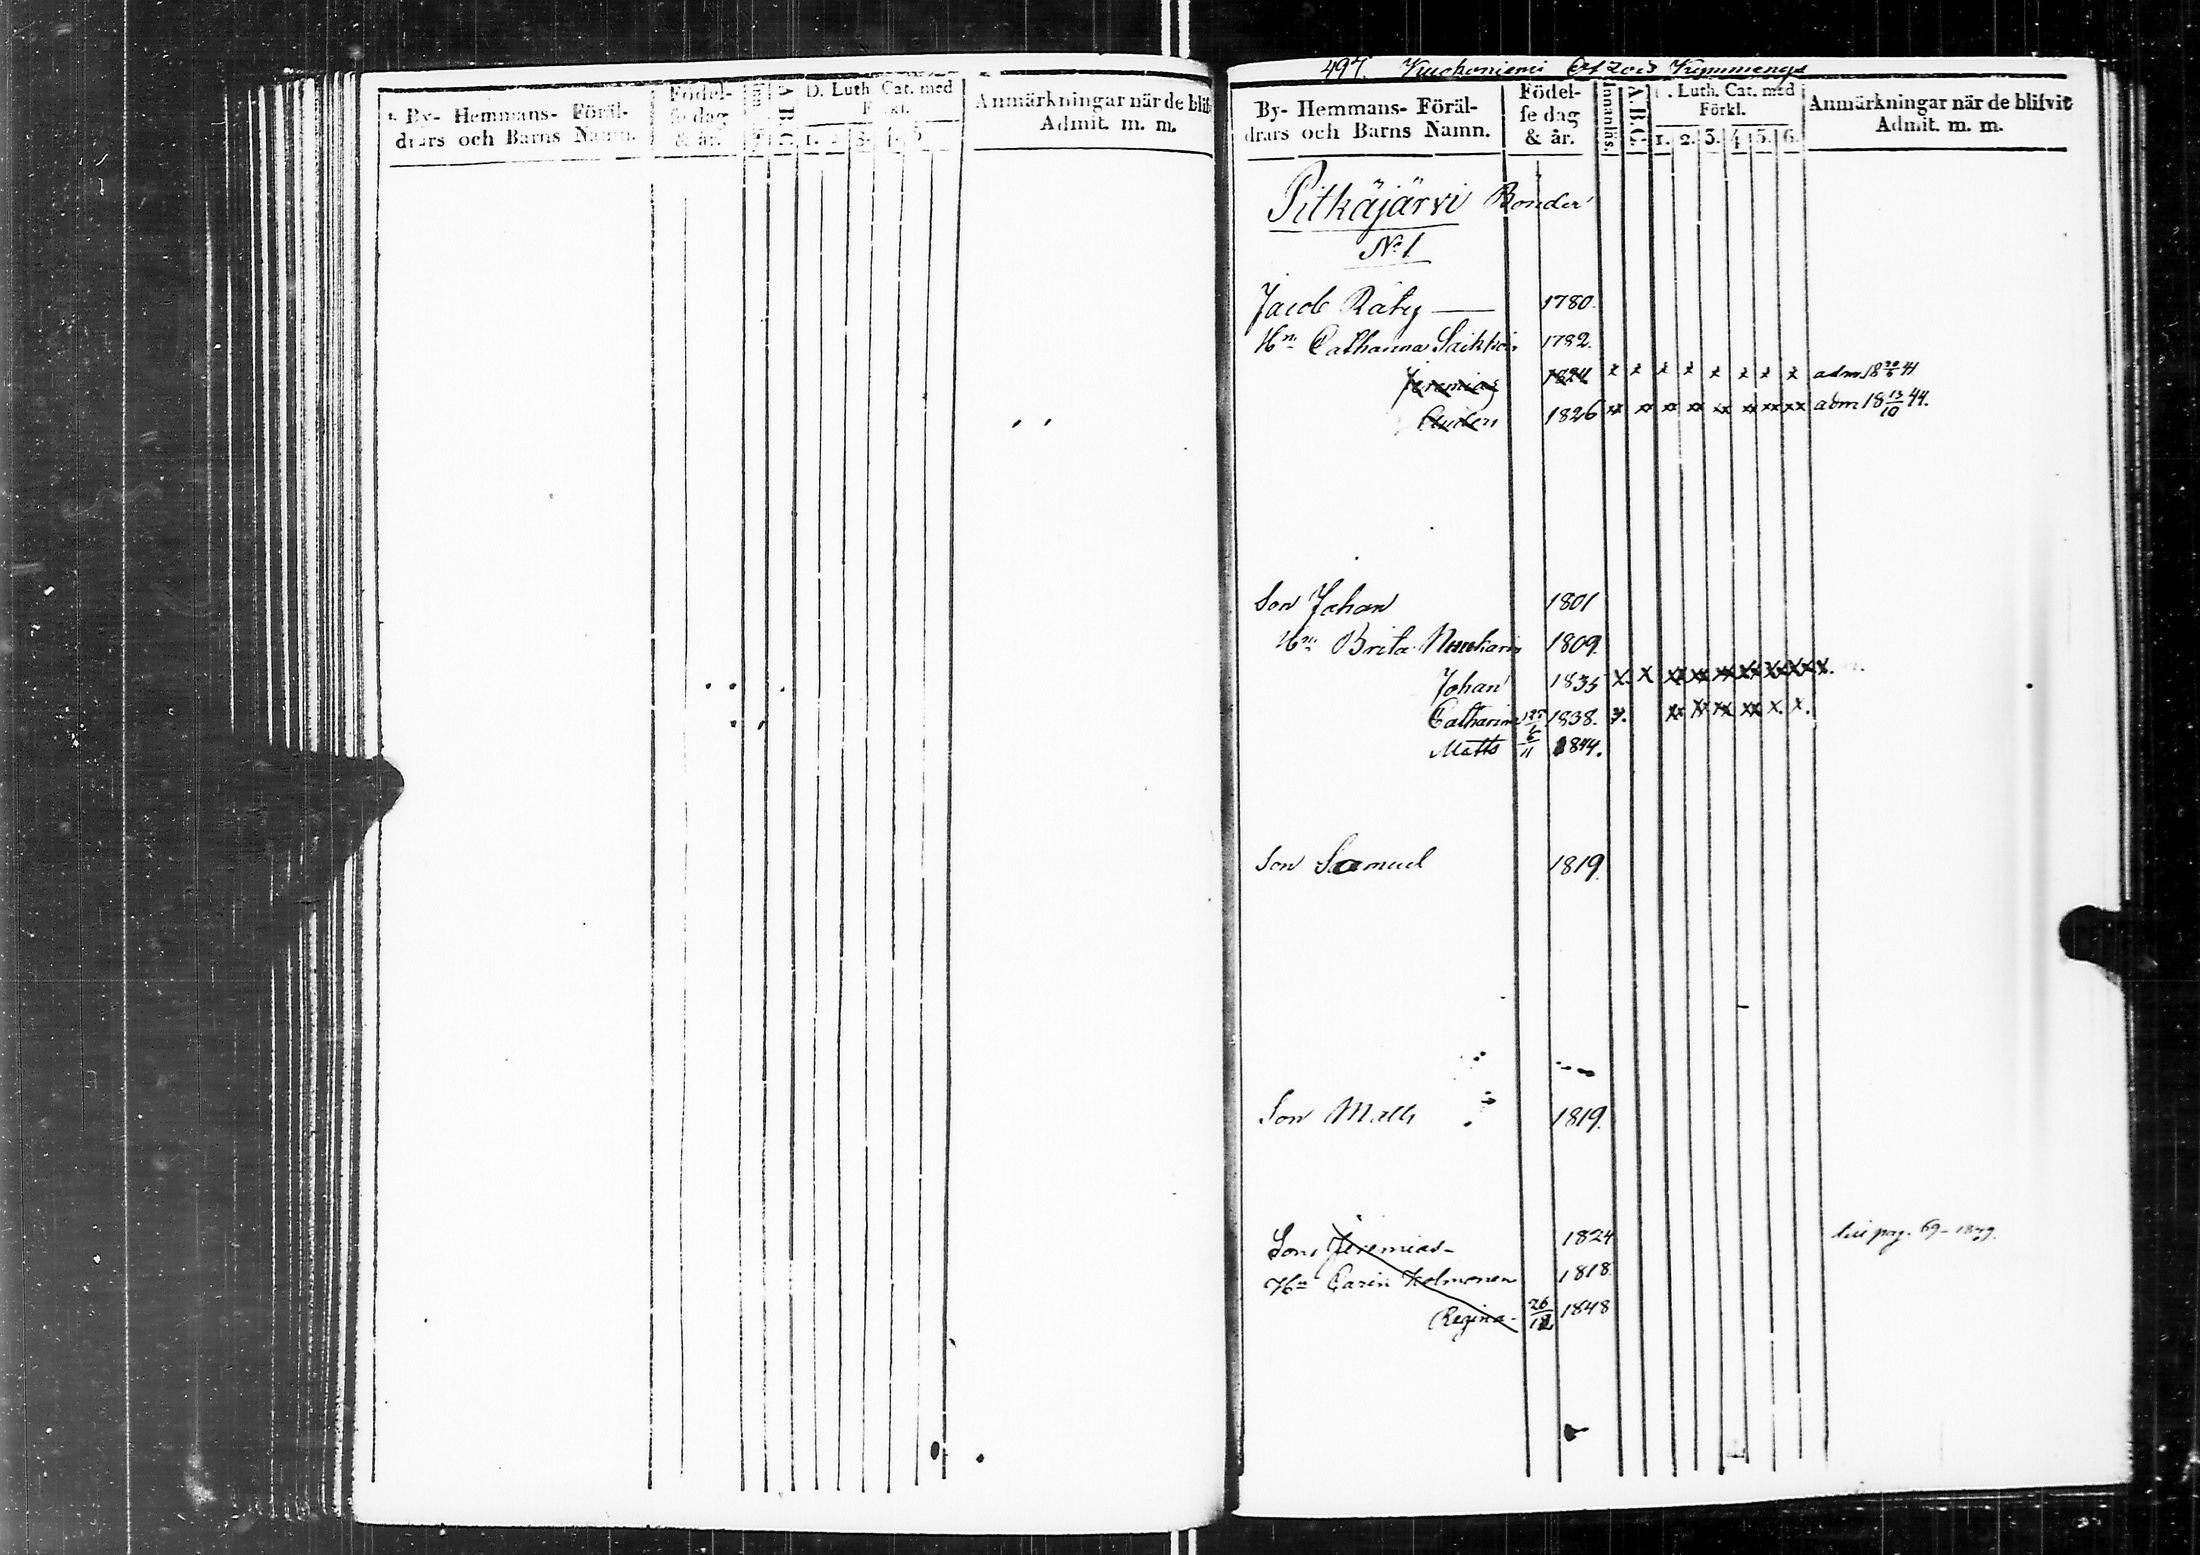 By- Hemmans- Föräl- Födel- A.B.C. D. Luth. Cat. med Anmärkningar när de blifv
drars och Barns Namn. se dag Förkl. Admit. m. m.
& år. 1. 2. 3. 4. 5
497. Kymmenegs
By- Hemmans- Föräl- Födel- Innanläs. A.B.C. D. Luth. Cat. med Anmärkningar när de blifvit
drars och Barns Namn. se dag Förkl. Admit. m. m.
& år. 1. 2. 3. 4. 5. 6.
Pitkäjärvi Bönder
No 1
Jacob Räty 1780.
Hn Catharina 1782.
Jeremias 1824 x x x x x x x x adm. 18 20/6 41
1826 xx xx xx xx xx xx xx xx adm 18 13/10 44.
Son Johan 1801
Hn Brita 1809.
Johan 1835 x. x xx xx xx xx xx xx x.
Catharina 1838. x. xx xx xx xx x. x.
Matts 6/11 1844.
Son Samuel 1819.
Son Matts 1819.
Son Jeremias 1824 pag. 69
Hn Carin Holmonen 1818.
Regina 26/12 1848